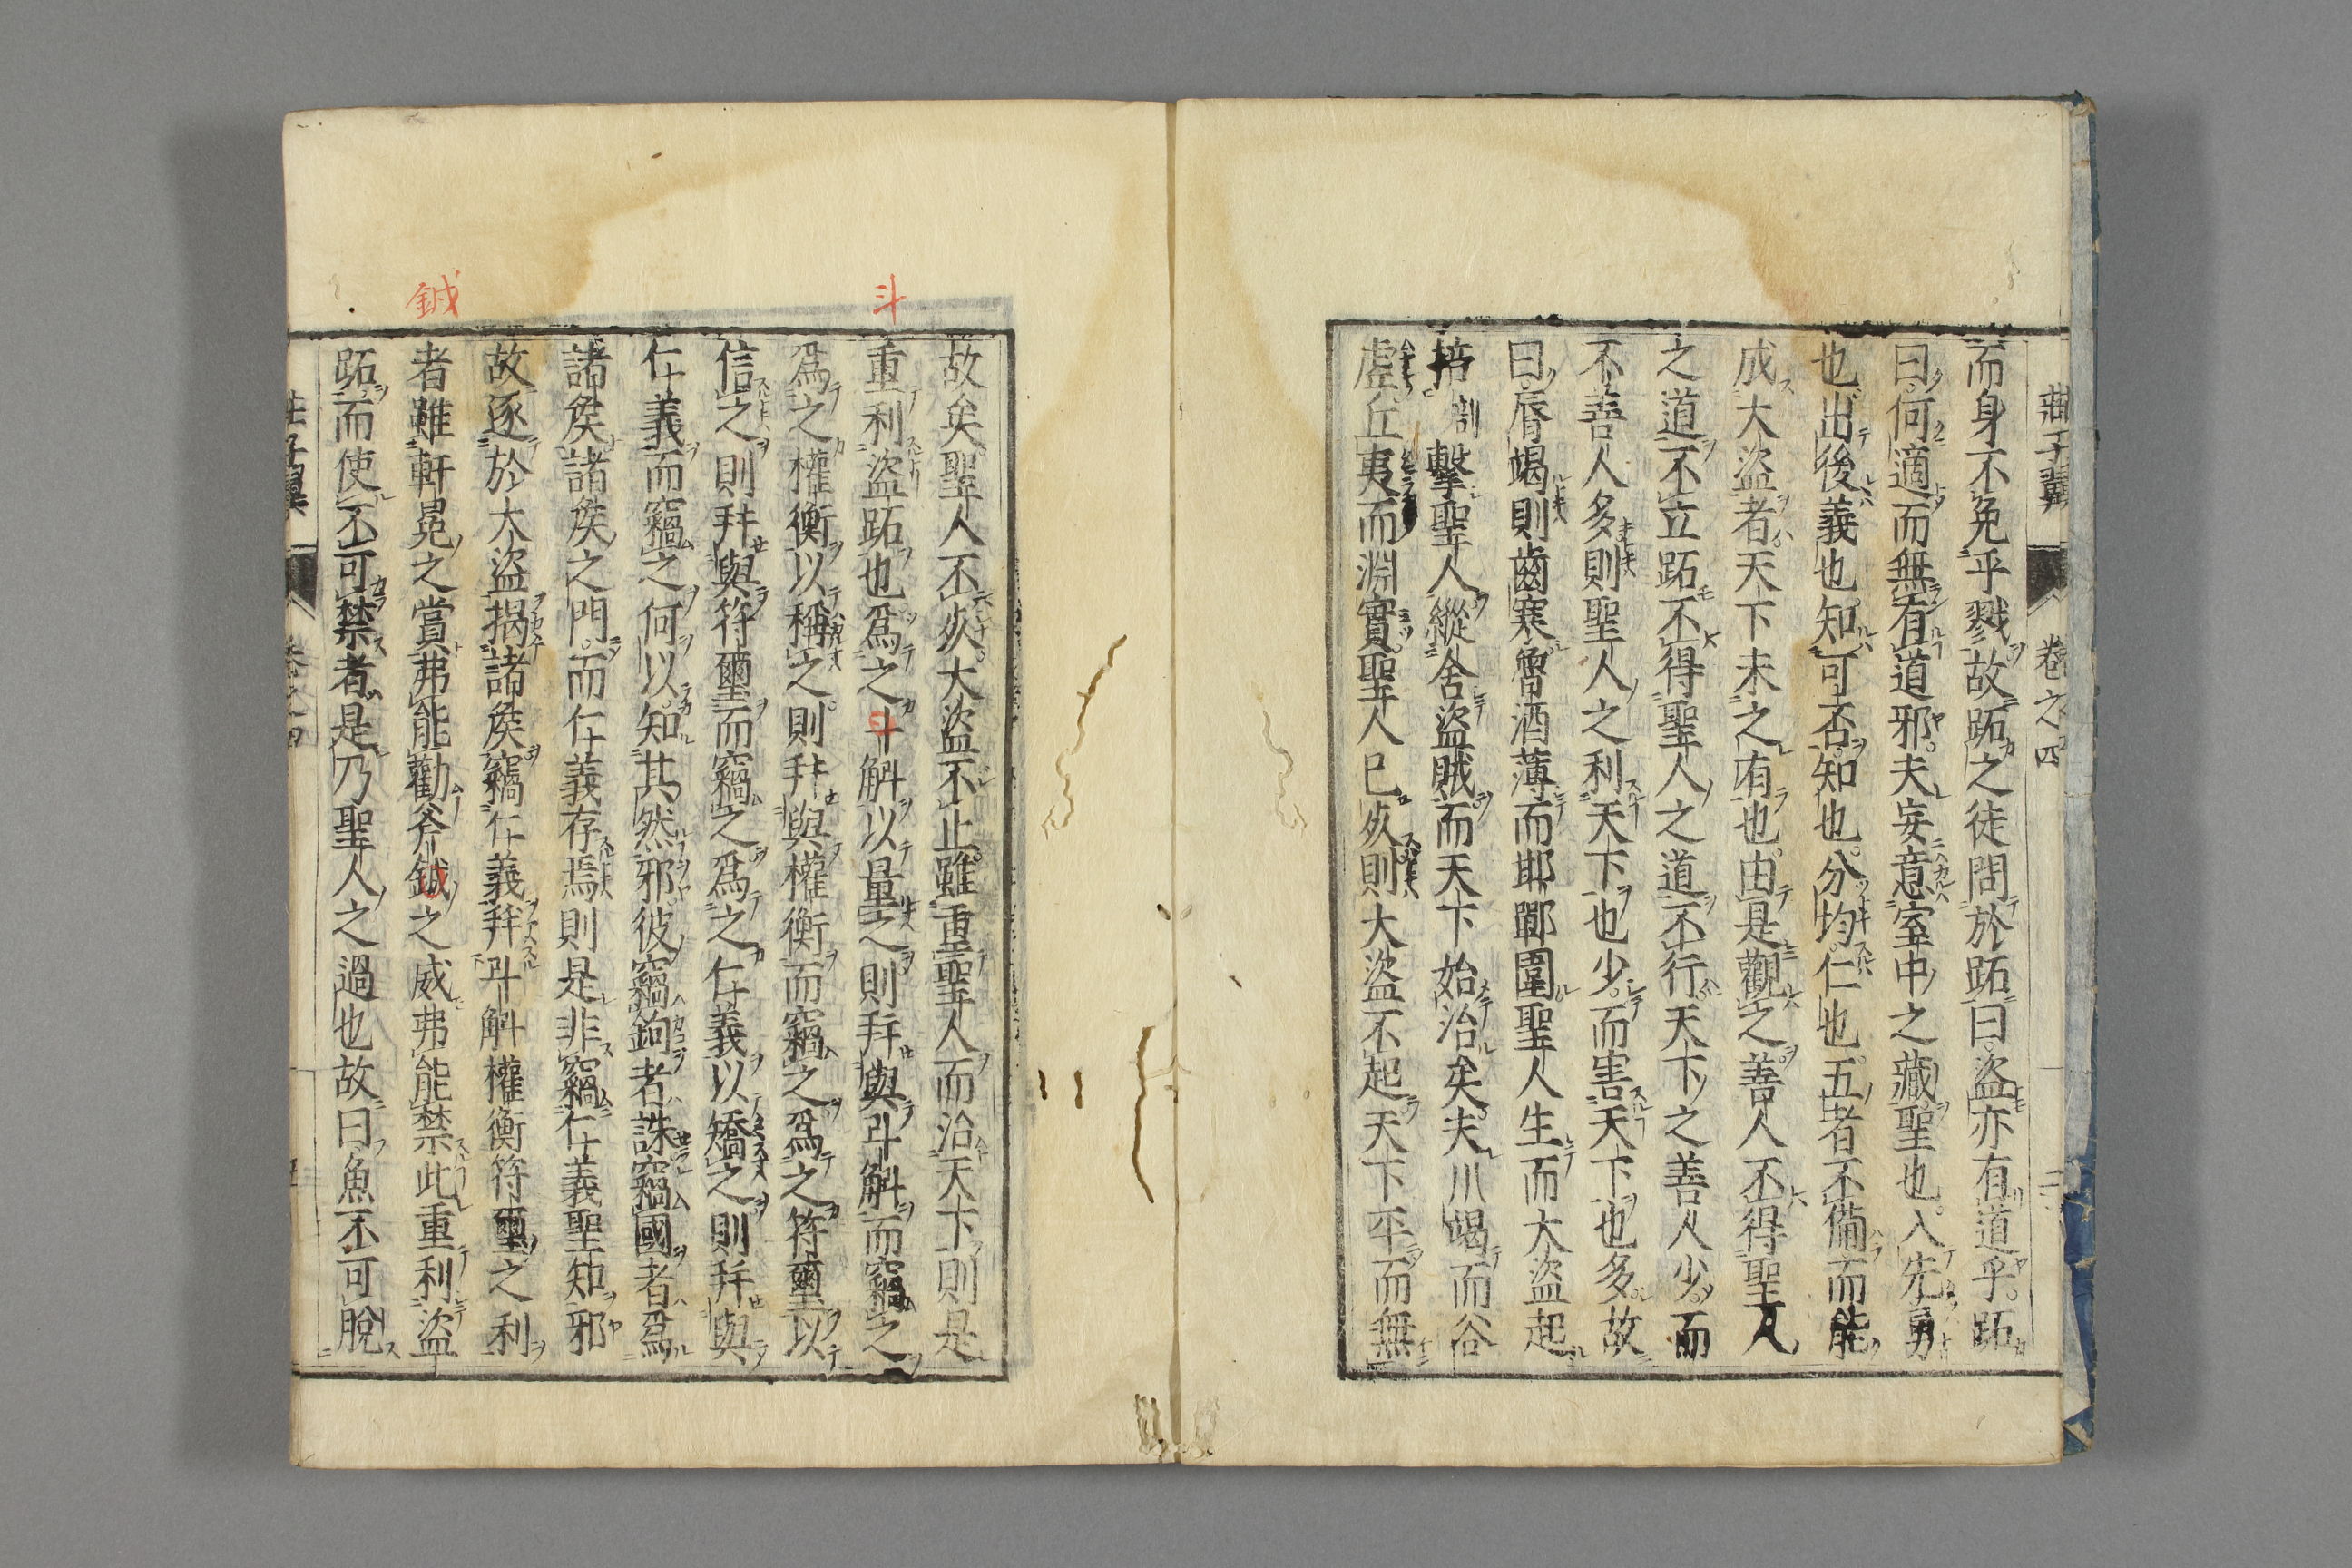 莊子翼 卷之四 二
而身不免乎戮故跖之徒問於跖曰盜亦有道乎跖
曰何適而無有道邪夫妄意室中之藏聖也入先勇
也出後義也知可否知也分均仁也五者不備而能
成大盜者天下未之有也由是觀之善人不得聖人
之道不立跖不得聖人之道不行天下之善人少而
不善人多則聖人之利天下也少而害天下也多故
曰脣竭則齒寒魯酒薄而邯鄲圍聖人生而大盜起
掊擊聖人縱舍盜賊而天下始治矣夫川竭而谷
虛丘夷而淵實聖人已死則大盜不起天下平而無
故矣聖人不死大盜不止雖重聖人而治天下則是
重利盜跖也爲之斗斛以量之則并與斗斛而竊之
爲之權衡以稱之則并與權衡而竊之爲之符璽以
信之則并與符璽而竊之爲之仁義以矯之則并與
仁義而竊之何以知其然邪彼竊鉤者誅竊國者爲
諸矦諸矦之門而仁義存焉則是非竊仁義聖知邪
故逐於大盜揭諸矦竊仁義并斗斛權衡符璽之利
者雖軒冕之賞弗能勸斧鉞之威弗能禁此重利盜
跖而使不可禁者是乃聖人之過也故曰魚不可脫
斗
鉞